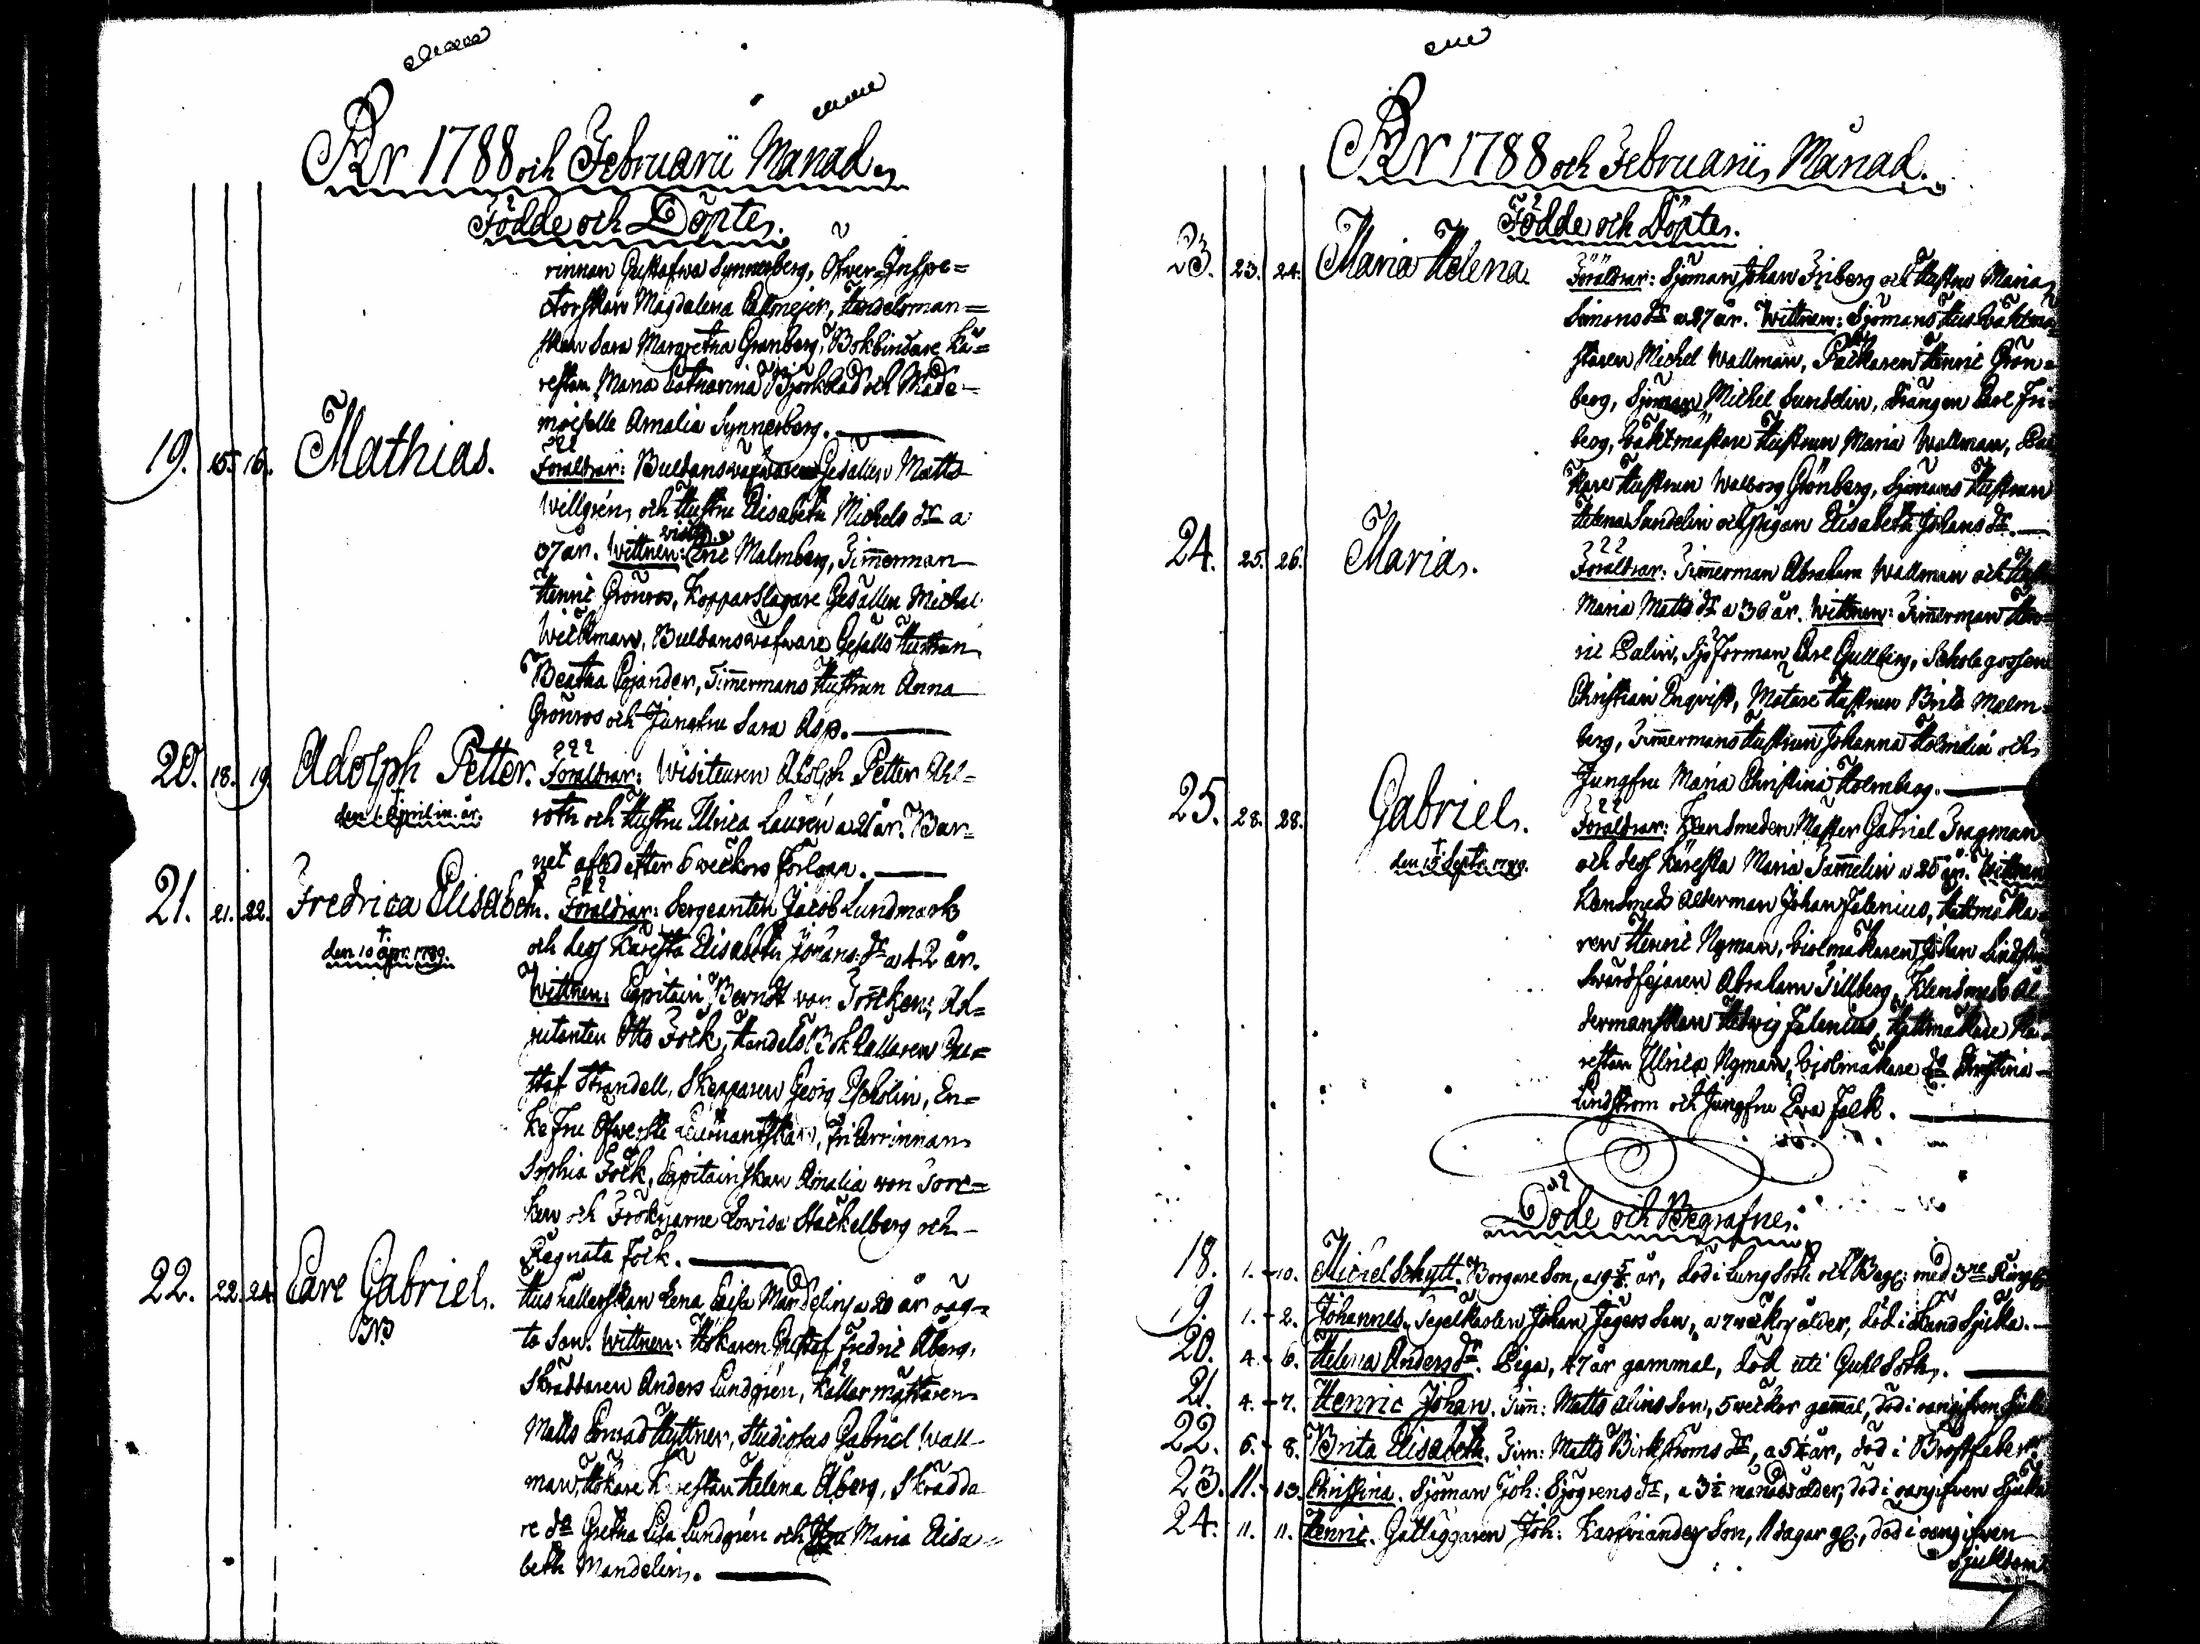 År 1788 och Februarii Månad.
Födde och Döpte.
rinnan Gustafwa Synnerberg, Öfwer-Inspe=
ctorskan Magdalena Pallmejer, Handelsman=
skan Sara Margretha Granberg, Bokbindare Kä=
restan Maria Catharina Björkblad och Made=
moiselle Amalia Synnerberg.
19. 15. 16. Mathias. Föräldrar: Buldanswäfware Gesällen Matts
Willgren och Hustru Elisabeth Michels dr a
37 år. Wittnen: Eric Malmberg, Timmerman
Henric Grönros, Kopparslagare Gesällen Michel
Wickman, Buldanswäfware Gesälls Hustrun
Beatha Cajander, Timmermans Hustrun Anna
Grönros och Jungfru Sara Asp.
20. 18. 19. Adolph Petter. Föräldrar: Wisiteuren Adolph Petter Ahl=
den 1 April in. år. roth och Hustru Ulrica Lauren a 21 år. Bar=
net afled efter 6 weckors förlopp.
21. 21. 22. Fredrica Elisabeth. Föräldrar: Sergeanten Jacob Lundmark
den 10 apr. 1789. och dess Käresta Elisabeth Johans dr a 42 år.
Wittnen: Capitain Berndt von Torcken, Ad=
jutanten Otto Fock, Handels Bokhållaren Gu=
staf Strandell, Skepparen Georg Escholin, En=
ke Fru Öfwerste Lieutnantskan, Friherrinnan
Sophia Fock, Capitainskan Amalia von Torc=
ken och Fröknarne Lowisa Stackelberg och
Regnata Fock.
22. 22. 24. Carl Gabriel. Hushållerskan Lena Caisa Mandelin a 20 år oäg=
NB ta Son. Wittnen: Hökaren Gustaf Fredric Åberg,
Skräddaren Anders Lundgren, Källarmästaren
Matts Conrad Hyttner, Studiosus Gabriel Wall=
man, Hökare Kärestan Helena Åberg, Skrädda
re do Gretha Lisa Lundgren och Maria Elisa=
beth Mandelin.
År 1788 och Februarii Månad.
Födde och Döpte.
23. 23. 24. Maria Helena. Föräldrar: Sjöman Johan Friberg och Hustru Maria
Simons dr a 27 år. Wittnen: Sjömans Hus Waktmä
staren Michel Wallman, Packaren Henric Grön=
berg, Sjöman Michel Sundelin, Drängen Carl Fri
berg, Waktmästare Hustrun Maria Wallman, Pac
kare Hustrun Walborg Grönberg, Sjömans Hustrun
Helena Sundelin och Pigan Elisabeth Johans dr.
24. 25. 26. Maria. Föräldrar: Timmerman Abraham Wallman och Hustr
Maria Matts dr a 36 år. Wittnen: Timmerman Hen=
ric Palin, Sjöförman Carl Gullberg, Schole gossen
Christian Engvist, Mätare Hustrun Brita Malm=
berg, Timmermans Hustrun Johanna Holmelin och
Jungfru Maria Christina Holmberg.
25. 28. 28. Gabriel. Föräldrar: Klensmeden Mäster Gabriel Fragman
den 15 Septr. 1789. och dess Käresta Maria Tammelin a 25 år. Wittnen
Klensmeds Ålderman Johan Falenius, Hattmaka=
ren Henric Nyman, Violmakaren Johan Lindström
Swärdfejaren Abraham Tillberg, Klensmeds Ål
dermanskan Hedwig Falenius, Hattmakare Kä=
restan Ulrica Nyman, Violmakare do Christina
Lindström och Jungfru Ewa Falck.
Döde och Begrafne.
18. 1. 10. Michel Schytt. Borgare Son, a 19 5/8 år, död i Lungsot och Begr: med 3ne Ringn
19. 1. 2. Johannes. Segelkarlen Johan Jägers Son, a 7 weckors ålder, död i okänd Sjukd.
20. 4. 6. Helena Anders dr. Piga, 47 år gammal, död uti Guhl Soth.
21. 4. 7. Henric Johan. Tim: Matts Alins Son, 5 weckor gammal, död i oangifwen Sjukd
22. 6. 8. Brita Elisabeth. Tim: Matts Birkströms dr, a 5 1/4 år, död i Bröstfeber.
23. 11. 13. Christina. Sjöman Joh: Sjögrens dr, a 3 1/2 månads ålder, död i oangifwen Sjukd
24. 11. 11. Henric. Gatläggaren Joh: Son, 11 dagar gl., död i oangifwen
Sjukdom.